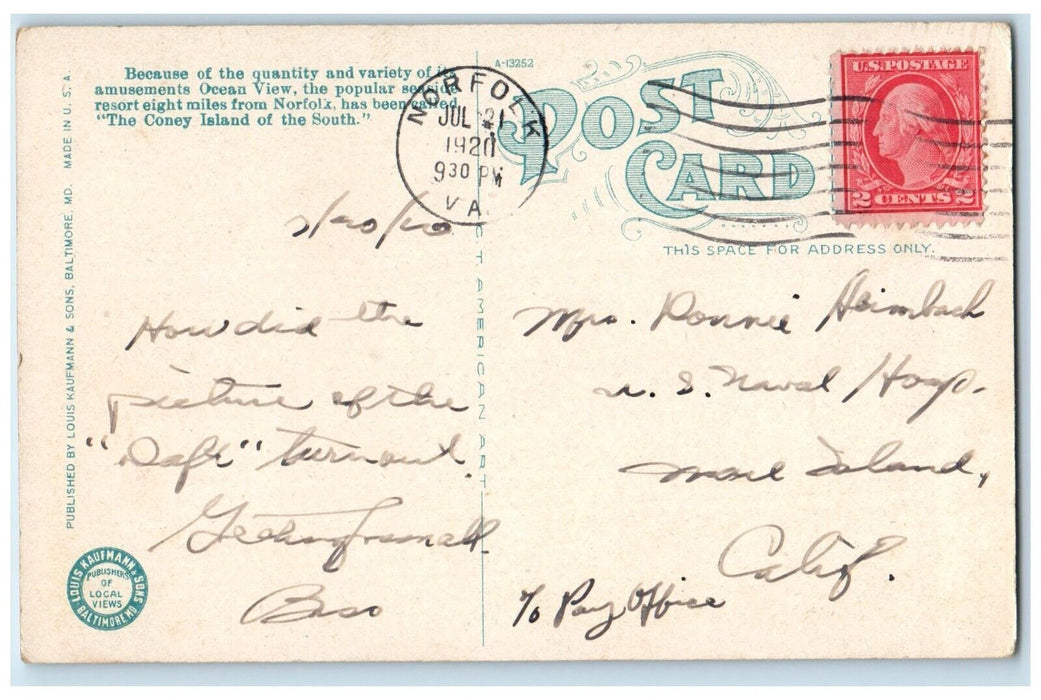 Because of the quantity and variety of its
amusements Ocean View, the popular seaside
resort eight miles from Norfolk, has been called
"The Coney Island of the South."
A-13252
POST
CARD
NORFOLK
JUL 21
1920
930 PM
VA.
U.S. POSTAGE
2 CENTS 2
THIS SPACE FOR ADDRESS ONLY.
PUBLISHED BY LOUIS KAUFMANN & SONS, BALTIMORE, MD. MADE IN U. S. A.
C. T. AMERICAN ART
How did the
picture of the
"Daft" turnout.
Greetings from all
Mrs. Ronnie Heimbach
U. S. Naval Hosp.
Mare Island,
Calif.
℅ Pay Office
LOUIS KAUFMANN & SONS
BALTIMORE MD.
PUBLISHERS
OF
LOCAL
VIEWS